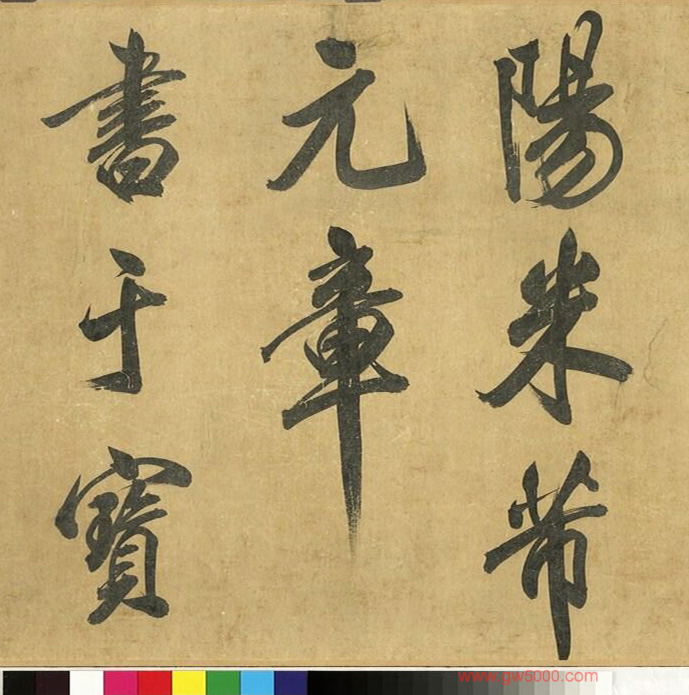 陽米芾
元章
書于寶
www.gw5000.com